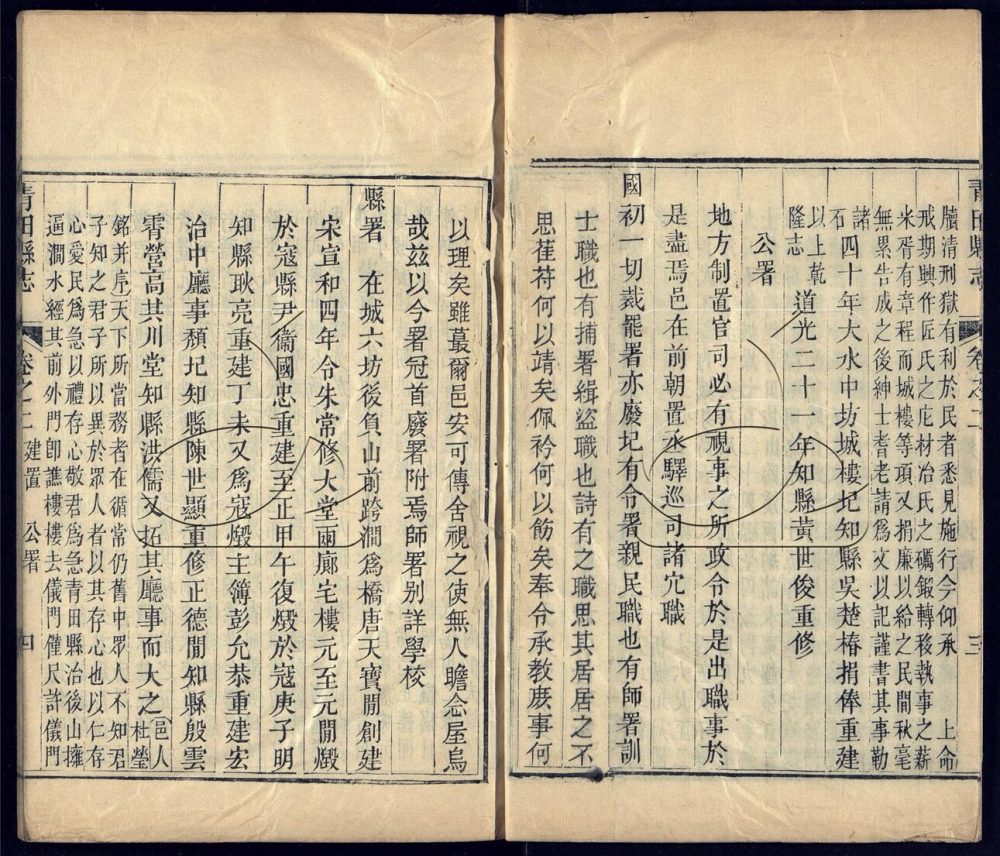 青田縣志
卷之二
三
牘清刑獄有利於民者悉見施行今仰承 上命
戒期興作匠氏之庀材冶氏之礪鍜轉移執事之薪
米胥有章程而城樓等項又捐廉以給之民間秋毫
無累告成之後紳士耆老請爲文以記謹書其事勒
諸石
四十年大水中坊城樓圮知縣吳楚椿捐俸重建
以上乾
隆志
道光二十一年知縣黃世俊重修
公署
地方制置官司必有視事之所政令於是出職事於
是盡焉邑在前朝置丞驛巡司諸宂職
國初一切裁罷署亦廢圮有令署親民職也有師署訓
士職也有捕署緝盜職也詩有之職思其居居之不
思萑苻何以靖矣佩衿何以飭矣奉令承教庻事何
以理矣雖蕞爾邑安可傳舍視之使無人瞻念屋烏
哉兹以今署冠首廢署附焉師署别詳學校
縣署 在城六坊後負山前跨澗爲橋唐天寶間創建
宋宣和四年令朱常修大堂兩廊宅樓元至元間燬
於寇縣尹衞國忠重建至正甲午復燬於寇庚子明
知縣耿亮重建丁未又爲寇燬主簿彭允恭重建宏
治中廳事頽圮知縣陳世顯重修正德間知縣殷雲
霄營高其川堂知縣洪儒又拓其廳事而大之
邑人
杜瑩
銘并序天下所當務者在循常仍舊中眾人不知君
子知之君子所以異於眾人者以其存心也以仁存
心愛民爲急以禮存心敬君爲急青田縣治後山擁
逼澗水經其前外門卽譙樓樓去儀門僅尺許儀門
青田縣志
卷之二
建置 公署
四